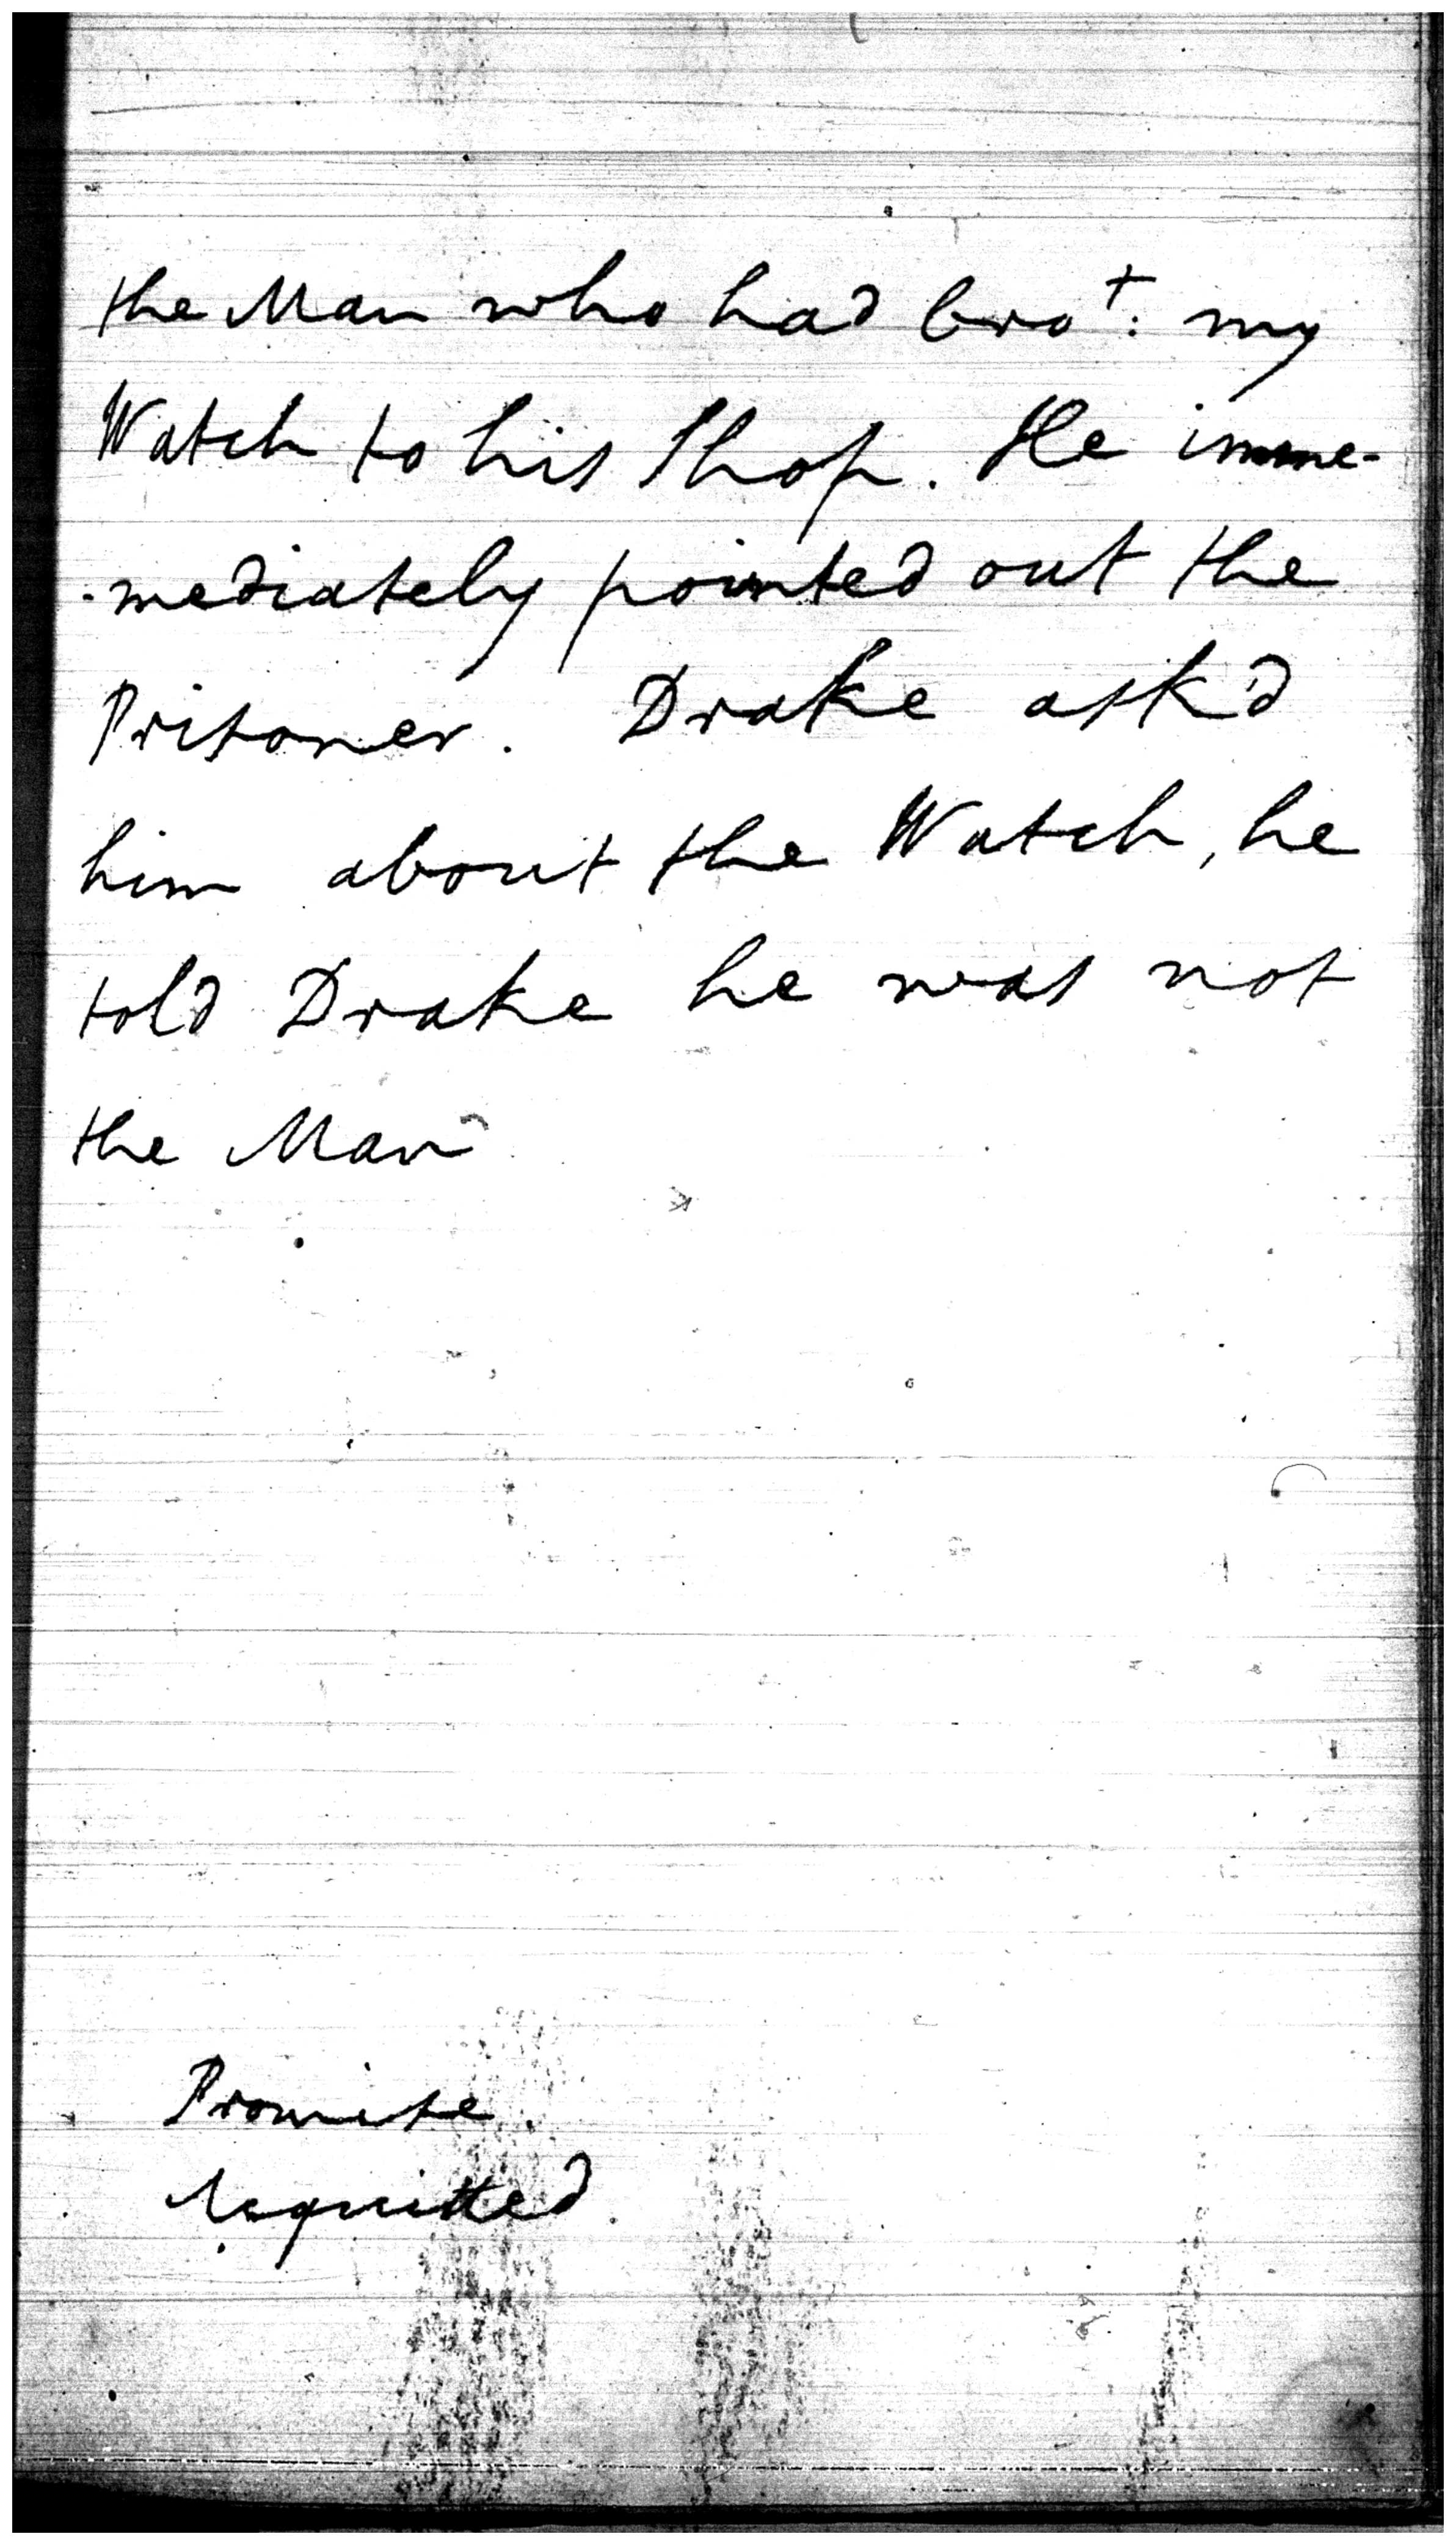 the Man who had bro^t: my
Watch to his Shop. He imme-
-mediately pointed out the
Prisoner. Drake ask'd
him about the Watch, he
told Drake he was not
the Man
Promise.
Acquitted.